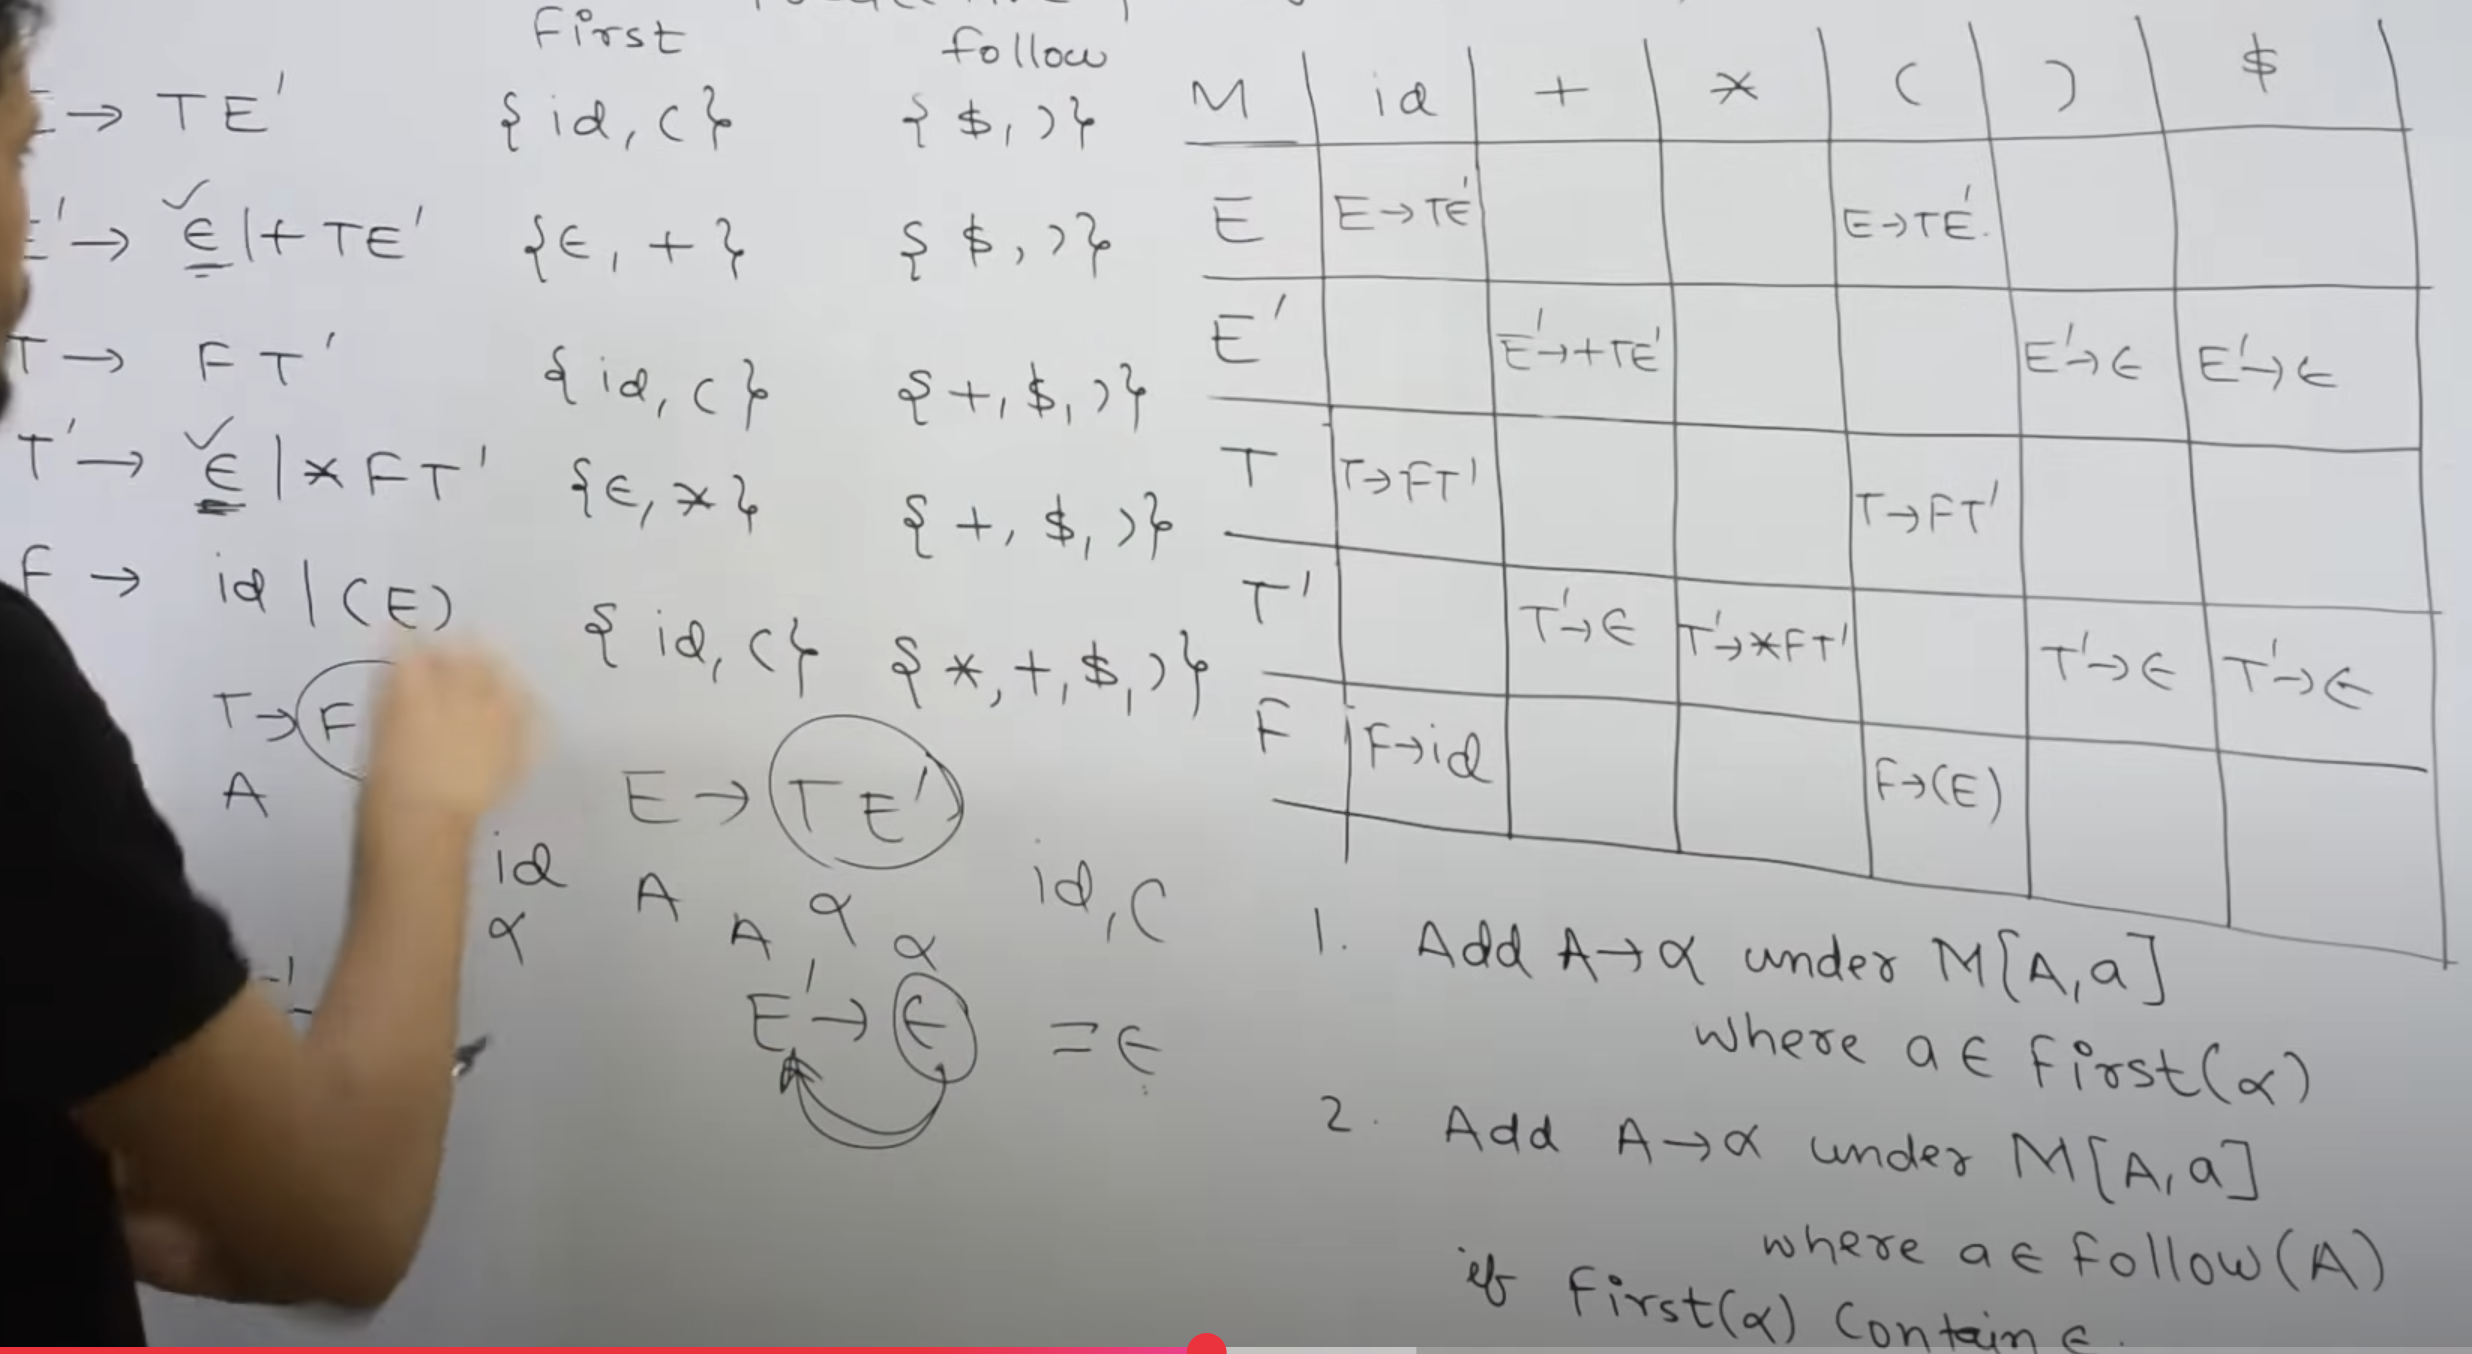 First follow
E → TE' {id, (} {$, )}
E' → ϵ | + TE' {ϵ, +} {$, )}
T → FT' {id, (} {+, $, )}
T' → ϵ | * FT' {ϵ, *} {+, $, )}
F → id | (E) {id, (} {*, +, $, )}
T → F
A
id
α
E → TE'
A α id, (
A α
E' → ϵ = ϵ
M id + * ( ) $
E E → TE' E → TE'
E' E' → +TE' E' → ϵ E' → ϵ
T T → FT' T → FT'
T' T' → ϵ T' → *FT' T' → ϵ T' → ϵ
F F → id F → (E)
1. Add A → α under M[A, a]
where a ∈ First(α)
2. Add A → α under M[A, a]
where a ∈ Follow(A)
if First(α) Contain ϵ.